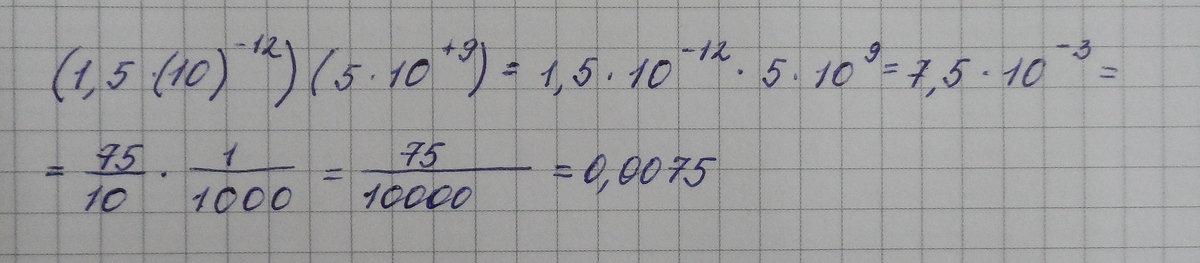 (1,5·(10)^{-12})(5·10^{+9}) = 1,5·10^{-12}·5·10^{9} = 7,5·10^{-3} =
= \frac{75}{10} · \frac{1}{1000} = \frac{75}{10000} = 0,0075